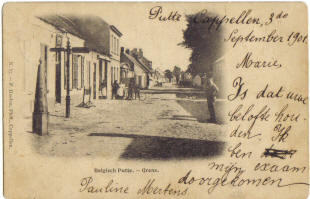 Putte - Cappellen, 3de
September 1901.
Marie,
Is dat uwe
belofte hou-
den. Ik
ben
mijn exaam
doorgekomen
Pauline Mertens.
Belgisch Putte. — Grens.
F. Hoelen, Phot., Cappellen.